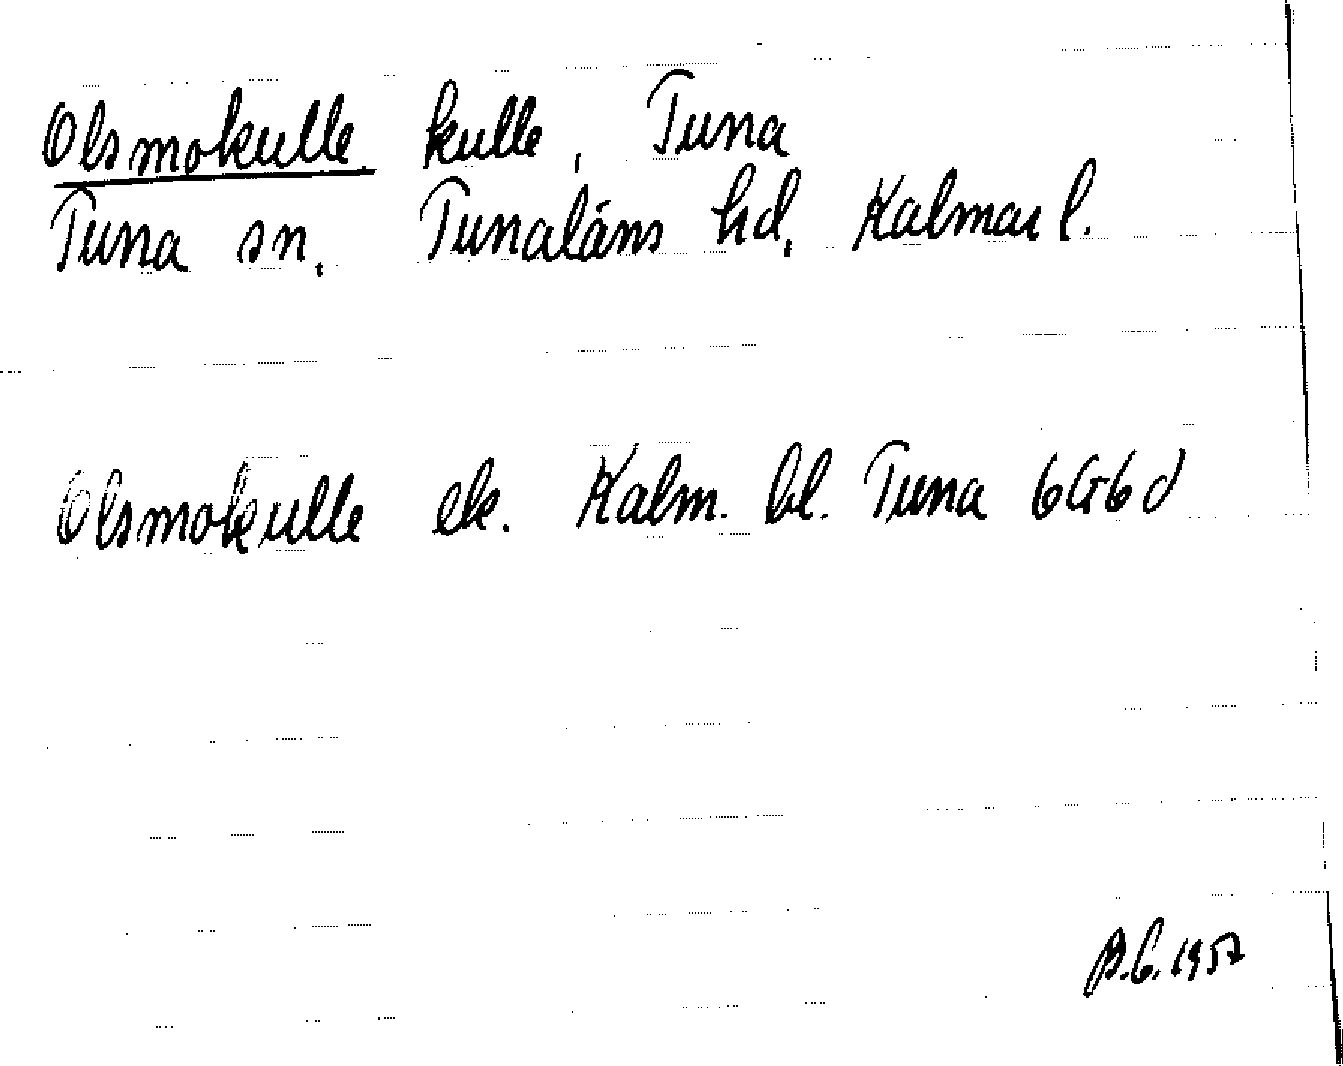 Olsmokulle kulle, Tuna
Tuna sn. Tunaläns hd. Kalmar l.
Olsmokulle ek. Kalm. bl. Tuna 6G6d
1957